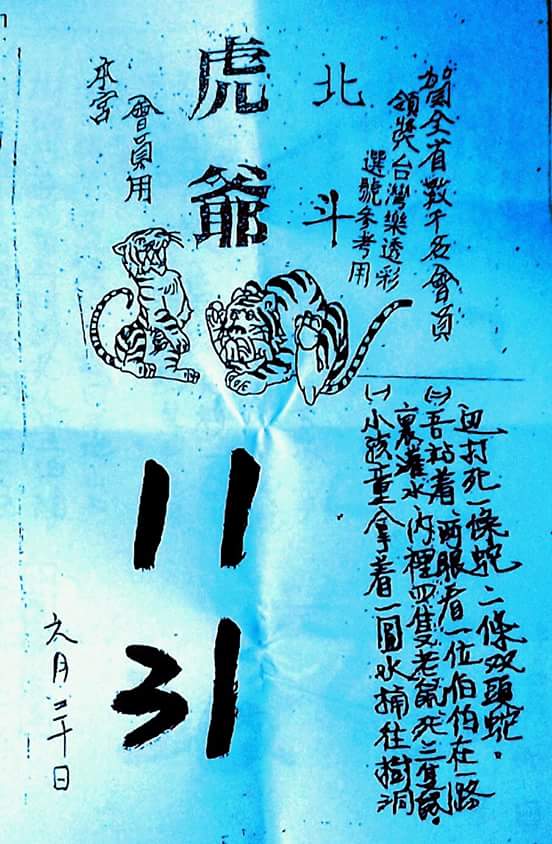 賀全省數千名會員
領獎台灣樂透彩
選號參考用
北斗
虎爺
本宮
會員用
(一)小孩童拿着一圓水桶往樹洞
裏灌水內裡四隻老鼠死三隻鼠。
(二)吾站着、兩眼看一位伯伯在一路
邊打死一條蛇二條双頭蛇。
11
31
六月二十日